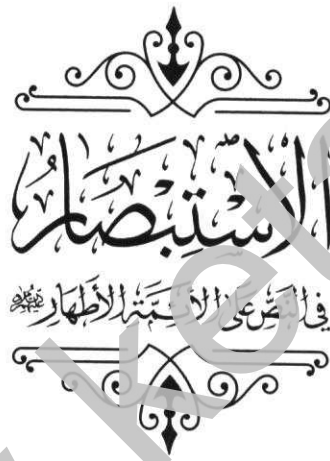 الاِسْتِبْصَارُ
فِي النَّصِّ عَلَى الأَئِمَّةِ الأَطْهَارِ